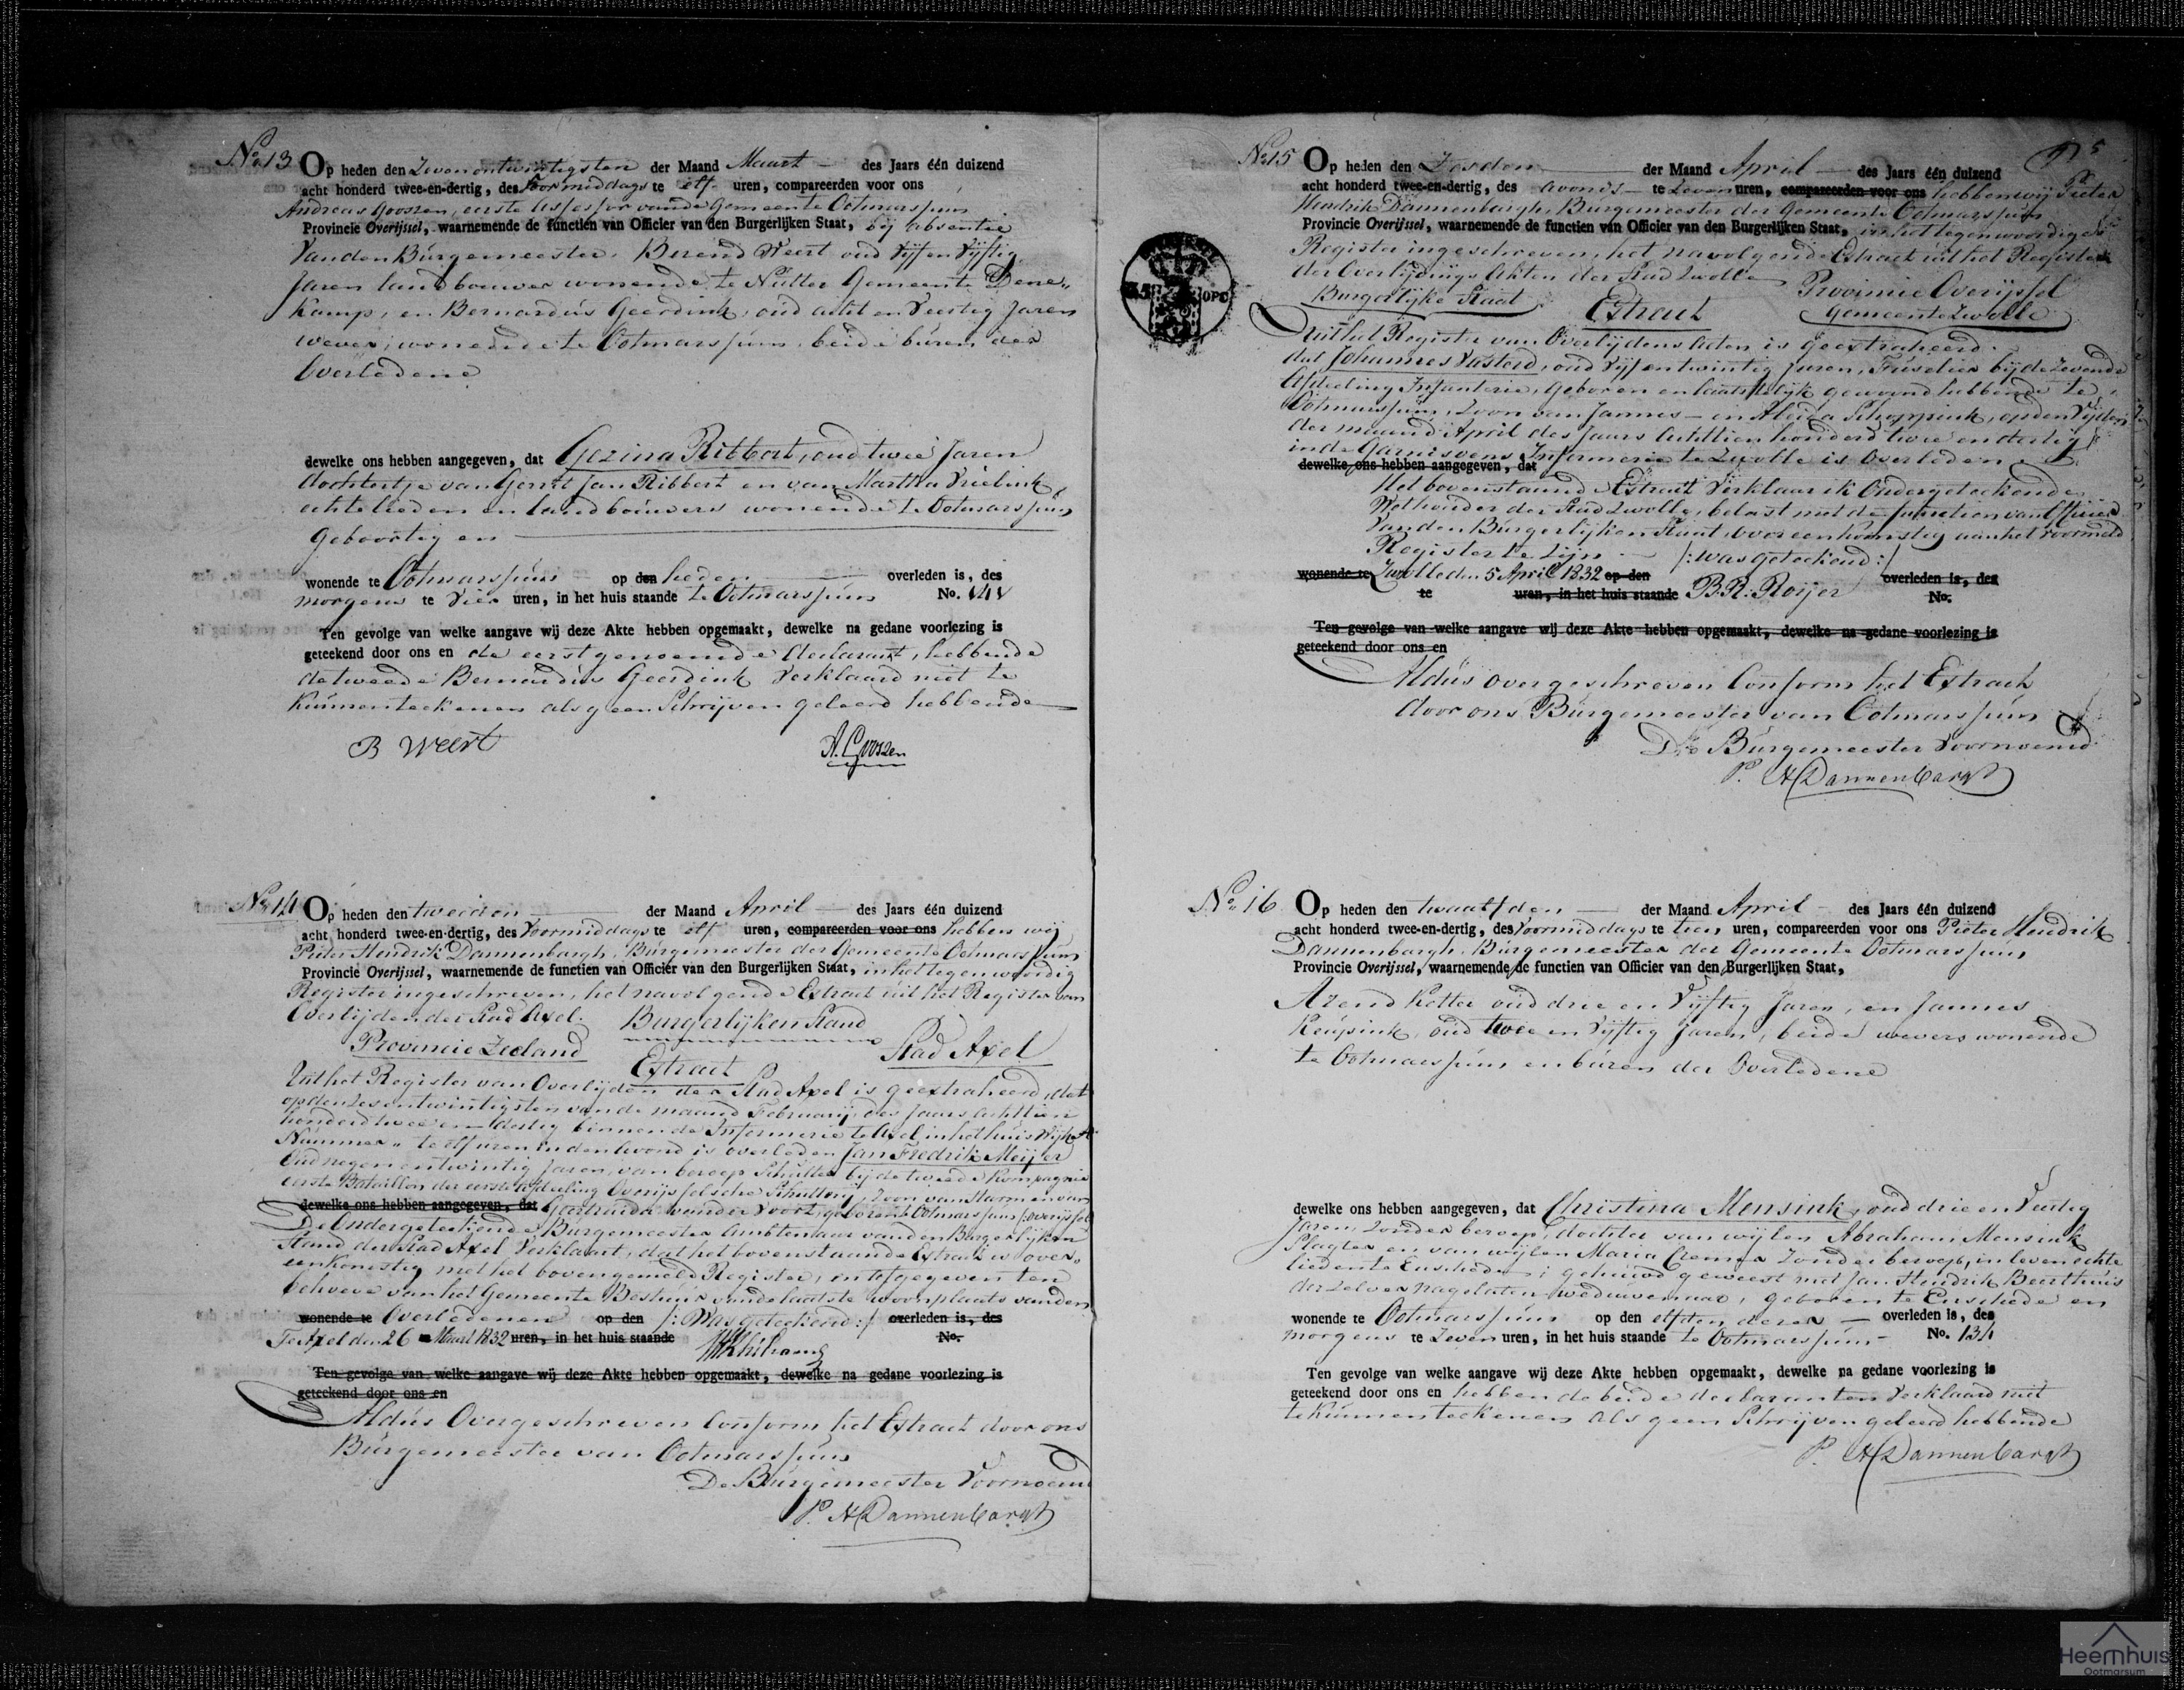 No 13 Op heden den Zevenentwintigsten der Maand Maart des Jaars één duizend
acht honderd twee-en-dertig, des Voormiddags te elf uren, compareerden voor ons
Andreas Goossen, eerste Assessor van de Gemeente Ootmarssum
Provincie Overijssel, waarnemende de functiën van Officier van den Burgerlijken Staat, bij absentie
Van den Burgemeester, Berend Weert oud Vijf en Vijftig
Jaren landbouwer wonende te Nutter Gemeente Dene„
kamp, en Bernardus Geerdink, oud acht en Veertig Jaren
wever, wonende te Ootmarssum, beide buren der
Overledene
dewelke ons hebben aangegeven, dat Gezina Ribbert, oud twee Jaren
dochtertje van Gerrit Jan Ribbert en van Martha Vrielink
echtelieden en landbouwers wonende te Ootmarssum
Geboortig en
wonende te Ootmarssum op den heden overleden is, des
morgens te Vier uren, in het huis staande te Ootmarssum No.
Ten gevolge van welke aangave wij deze Akte hebben opgemaakt, dewelke na gedane voorlezing is
geteekend door ons en de eerstgenoemde declarant, hebbende
de tweede Bernardus Geerdink Verklaard niet te
kunnen teekenen als geen Schrijven geleerd hebbende
B Weert A. Goossen
No 14 Op heden den tweeden der Maand April des Jaars één duizend
acht honderd twee-en-dertig, des Voormiddags te elf uren, compareerden voor ons hebben wij
Pieter Hendrik Dannenbargh, Burgemeester der Gemeente Ootmarssum
Provincie Overijssel, waarnemende de functien van Officiér van den Burgerlijken Staat, in het tegenwoordig
Register ingeschreven, het navolgende Extract uit het Register van
Overlijden der Stad Axel. Burgerlijken Stand
Provincie Zeeland Extract Stad Axel
Uit het Register van Overlijden der Stad Axel is geextraheerd, dat
op den Zesentwintigsten van de maand Februarij des Jaars achttien
honderd twee en dertig binnen de Infermerie te Axel in het huis Wijk A
Nummer „ te elf uren in den Avond is overleden Jan Fredrik Meijer
Oud negen entwintig Jaren, van beroep Schutter bij de tweede Kompagnie
eerste Bataillon der eerste Afdeeling Overijsselsche Schutterij, Zoon van Harmen van
dewelke ons hebben aangegeven, dat Geertruida van der Voort, geboren te Ootmarssum /:Overijssel
De Ondergeteekende Burgemeester Ambtenaar van den Burgerlijken
Stand der Stad Axel Verklaart, dat het bovenstaande Extract is over„
eenkomstig met het bovengemeld Register, en afgegeven ten
behoeve van het Gemeente Bestuur van de laatste woonplaats van den
wonende te Overledenen op den /: Was geteekend:/ overleden is, des
Te Axel den 26 Maart 1832 uren, in het huis staande No.
Ten gevolge van welke aangave wij deze Akte hebben opgemaakt, dewelke na gedane voorlezing is
geteekend door ons en
Aldus Overgeschreven Conform het Extract door ons
Burgemeester van Ootmarssum
De Burgemeester Voornoemd
P. H Dannenbargh
5
No 15 Op heden den Zesden der Maand April des Jaars één duizend
acht honderd twee-en-dertig, des avonds te Zeven uren, compareerden voor ons hebben wij Pieter
Hendrik Dannenbargh, Burgemeester der Gemeente Ootmarssum
Provincie Overijssel, waarnemende de functien van Officier van den Burgerlijken Staat, in het tegenwoordige
Register ingeschreven, het navolgende Extract uit het Register
der Overlijdings Akten der Stad Zwolle Provincie Overijssel
Burgerlijke Staat Extract Gemeente Zwolle
Uit het Register van Overlijdens Acten is geextraheerd
dat Johannes Vasterd, oud Vijfentwintig Jaren, Fuselier bij de Zevende
Afdeeling Infanterie, Geboren en laatstelijk gewoond hebbende te
Ootmarssum, Zoon van Jannes en Aleida Schoppink, op den Vijfden
der maand April des Jaars Achttien honderd twee en dertig
in de Garnisoens Infermerie te Zwolle is Overleden
dewelke ons hebben aangegeven, dat
Het bovenstaande Extract Verklaar ik Ondergeteekende
Wethouder der Stad Zwolle, belast met de functien van Officier
Van den Burgerlijken Staat, overeenkomstig aan het voormeld
Register te Zijn /: was geteekend:/
wonende te Zwolle den 5 April 1832 op den overleden is, des
te uren, in het huis staande B.R. Roijer No.
Ten gevolge van welke aangave wij deze Akte hebben opgemaakt, dewelke na gedane voorlezing is
geteekend door ons en
Aldus overgeschreven Conform het Extract
door ons Burgemeester van Ootmarssum
De Burgemeester Voornoemd
P. H Dannenbargh
No 16 Op heden den twaalfden der Maand April des Jaars één duizend
acht honderd twee-en-dertig, des Voormiddags te tien uren, compareerden voor ons Pieter Hendrik
Dannenbargh, Burgemeester der Gemeente Ootmarssum
Provincie Overijssel, waarnemende de functien van Officier van den Burgerlijken Staat,
Arend Kotte oud drie en Vijftig Jaren, en Jannes
Keupink, oud twee en Vijftig Jaren, beide wevers wonende
te Ootmarssum en buren der Overledene
dewelke ons hebben aangegeven, dat Christina Mensink, oud drie en Veertig
Jaren, Zonder beroep, dochter van wijlen Abraham Mensink
Slagter en van wijlen Maria Cremer Zonder beroep, in leven echte
lieden te Enschede; gehuwd geweest met Jan Hendrik Beerthuis
derzelver nagelaten weduwenaar, geboren te Enschede en
wonende te Ootmarssum op den elfden dezer overleden is, des
morgens te Zeven uren, in het huis staande te Ootmarssum No. 134
Ten gevolge van welke aangave wij deze Akte hebben opgemaakt, dewelke na gedane voorlezing is
geteekend door ons en hebben de beide declaranten Verklaard niet
te kunnen teekenen als geen Schrijven geleerd hebbende
P. H Dannenbargh
Heemhuis
Ootmarsum